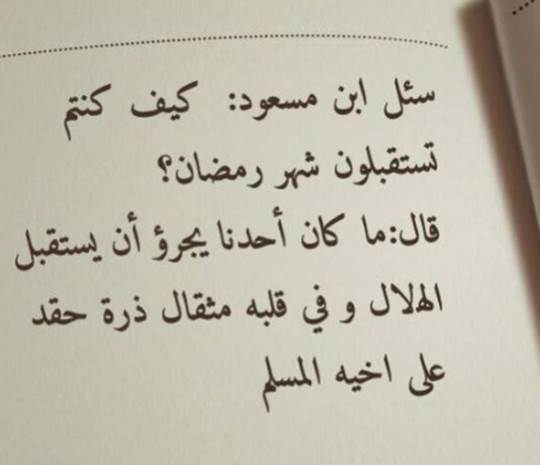 سئل ابن مسعود: كيف كنتم
تستقبلون شهر رمضان؟
قال:ما كان أحدنا يجرؤ أن يستقبل
الهلال و في قلبه مثقال ذرة حقد
على اخيه المسلم